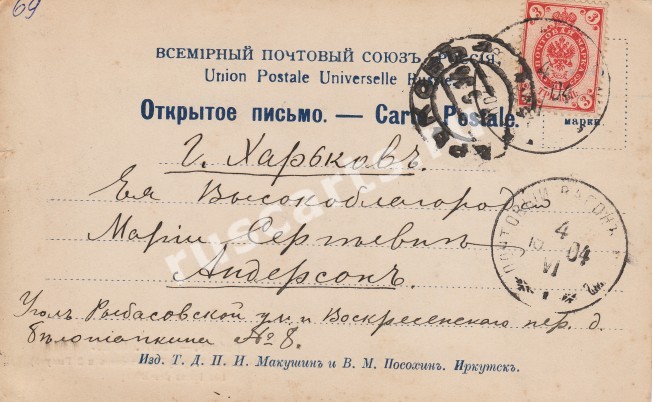 69
ВСЕМІРНЫЙ ПОЧТОВЫЙ СОЮЗЪ. Россія.
Union Postale Universelle Russie.
Открытое письмо. — Carte Postale.
марки
3 3
ПОЧТОВАЯ МАРКА
г. Харьковъ.
Ея Высокоблагородію
Маріи Сергѣевнѣ
Андерсонъ.
Уголъ Рыбасовской ул. и Воскресенскаго пер. д.
Бѣлолапкина № 8.
ПОЧТОВЫЙ ВАГОНЪ
4
VI 04
Изд. Т. Д. П. И. Макушинъ и В. М. Посохинъ. Иркутскъ.
ruscarts